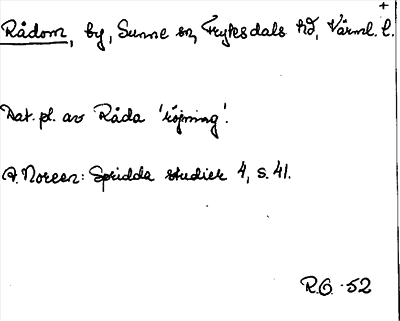 +
Rådom, by, Sunne sn, Fryksdals hd, Värml. l.
Dat. pl. av Råda 'röjning'.
A. Noreen: Spridda studier 4, s. 41.
R.O. -52